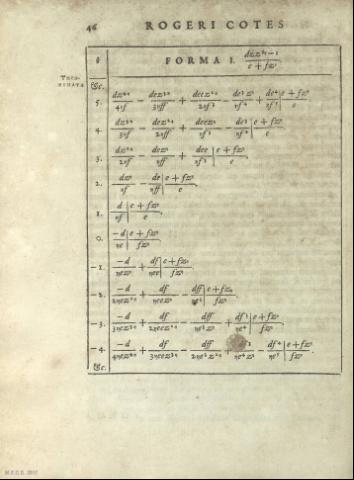 46 ROGERI COTES
THEO-
REMATA
θ FORMA I. dżz^{θη−1} / e + fz^η
&c.
5. dz^{4η}/4ηf − dez^{3η}/3ηff + deez^{2η}/2ηf^3 − de^3z^η/ηf^4 + de^4/ηf^5 | e + fz^η / e.
4. dz^{3η}/3ηf − dez^{2η}/2ηff + deez^η/ηf^3 − de^3/ηf^4 | e + fz^η / e.
3. dz^{2η}/2ηf − dez^η/ηff + dee/ηf^3 | e + fz^η / e.
2. dz^η/ηf − de/ηff | e + fz^η / e.
1. d/ηf | e + fz^η / e.
0. −d/ηe | e + fz^η / fz^η.
−1. −d/ηez^η + df/ηee | e + fz^η / fz^η.
−2. −d/2ηez^{2η} + df/ηeez^η − dff/ηe^3 | e + fz^η / fz^η.
−3. −d/3ηez^{3η} + df/2ηeez^{2η} − dff/ηe^3z^η + df^3/ηe^4 | e + fz^η / fz^η.
−4. −d/4ηez^{4η} + df/3ηeez^{3η} − dff/2ηe^3z^{2η} + df^3/ηe^4z^η − df^4/ηe^5 | e + fz^η / fz^η.
&c.